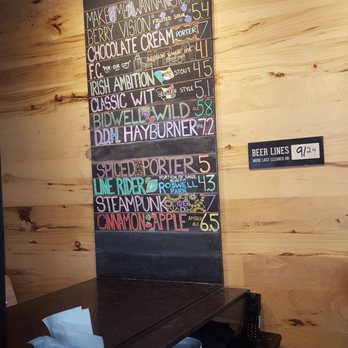 MAKE ME WANNA
BERRY VISION FRUITED SOUR 5.4
CHOCOLATE CREAM PORTER 7
F.C. "FOR OUR CITY" 4.1
IRISH AMBITION STOUT 4.5
CLASSIC WIT STYLE 5.1
BIDWELL WILD 5.8
DDH HAYBURNER 7.2
SPICED PORTER 5
LIME RIDER PORTION OF SALES BENEFIT ROSWELL PARK 4.3
STEAMPUNK 7
CINNAMON APPLE AMBER ALE 6.5
BEER LINES
WERE LAST CLEANED ON
9/24